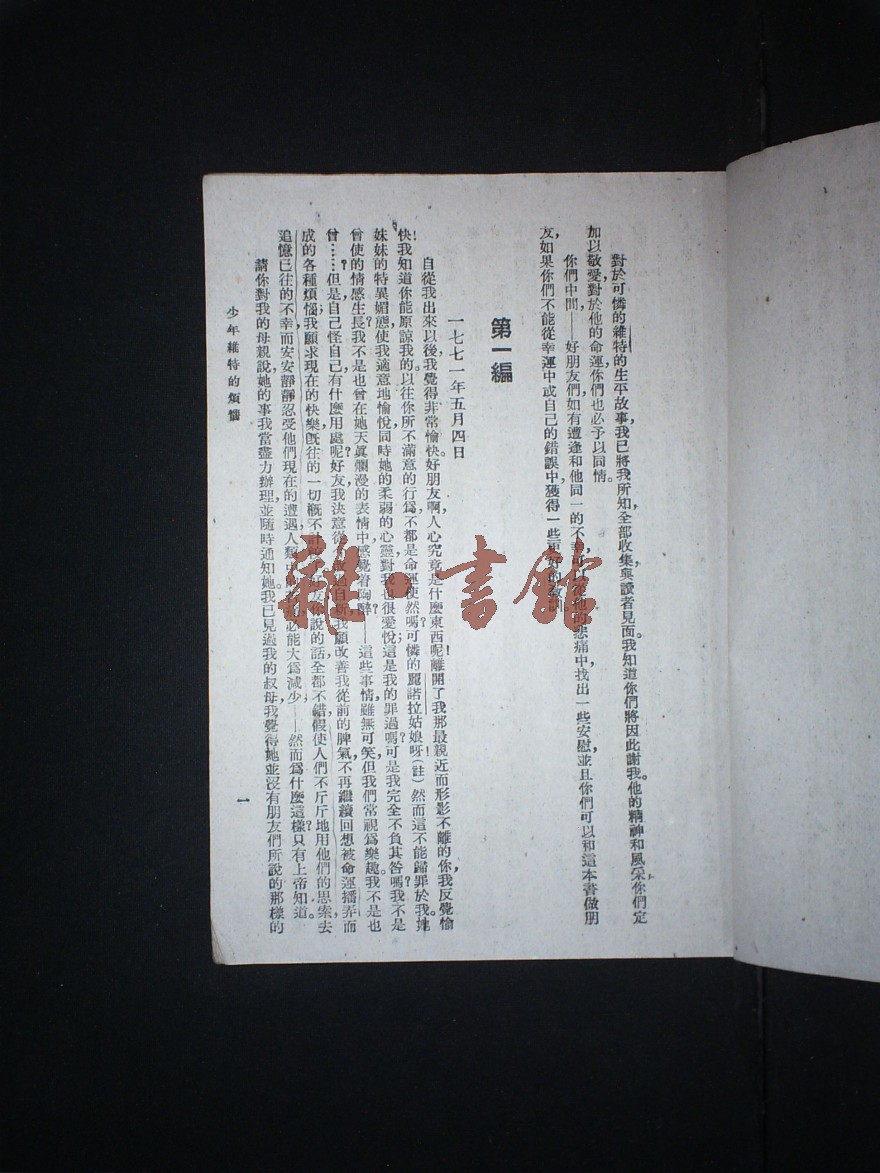 對於可憐的維特的生平故事，我已將我所知全部收集與讀者見面。我知道你們將因此謝我。他的精神和風采你們定
加以敬愛，對於他的命運，你們也必予以同情。
你們中間——好朋友們，如有遭逢和他同一的不幸，可以從他的悲痛中，找出一些安慰，並且你們可以和這本書做朋
友，如果你們不能從幸運中或自己的錯誤中，獲得一些更好的
第一編
一七七一年五月四日
自從我出來以後，我覺得非常愉快。好朋友啊，人心究竟是什麼東西呢！離開了我那最親近而形影不離的你，我反覺愉
快！我知道你能原諒我的。以往你所不滿意的行爲，不都是命運使然嗎？可憐的麗諾拉姑娘呀！(註)然而這不能歸罪於我。她
妹妹的特異媚態，使我適意地愉悅，同時她的柔弱的心靈，對我也很愛悅；這是我的罪過嗎？可是我完全不負其咎嗎？我不是
曾使的情感生長？我不是也曾在她天眞爛漫的表情中，感覺着陶醉？——這些事情，雖無可笑，但我們常視爲樂趣。我不是也
曾……？但是自己怪自己有什麼用處呢？好友，我決意從 我願改善我從前的脾氣，不再繼續回想被命運播弄而
成的各種煩惱；我願求現在的快樂，旣往的一切概不計 好友，你說的話全都不錯，假使人們不斤斤地用他們的思索，去
追憶已往的不幸，而安安靜靜忍受他們現在的遭遇，人類 必能大爲減少；——然而爲什麼這樣？只有上帝知道。
請你對我的母親說，她的事我當盡力辦理，並隨時通知她。我已見過我的叔母，我覺得她並沒有朋友們所說的那樣的
少年維特的煩惱
一
雜·書館